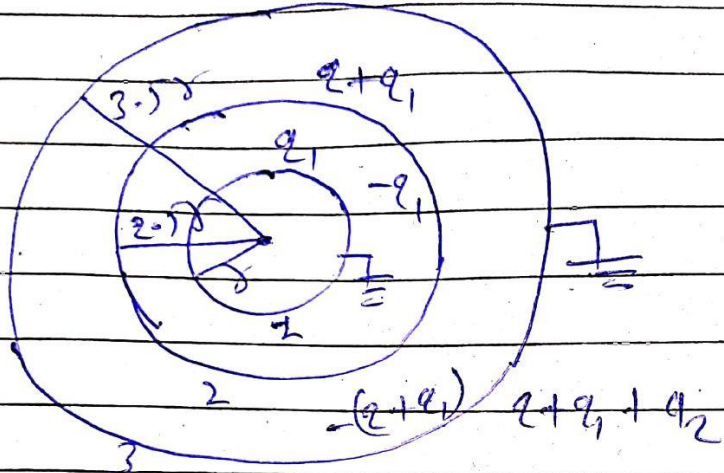 3.5r
q+q₁
q₁
-q₁
2.5r
r
1
2
-(q+q₁) q+q₁+q₂
3